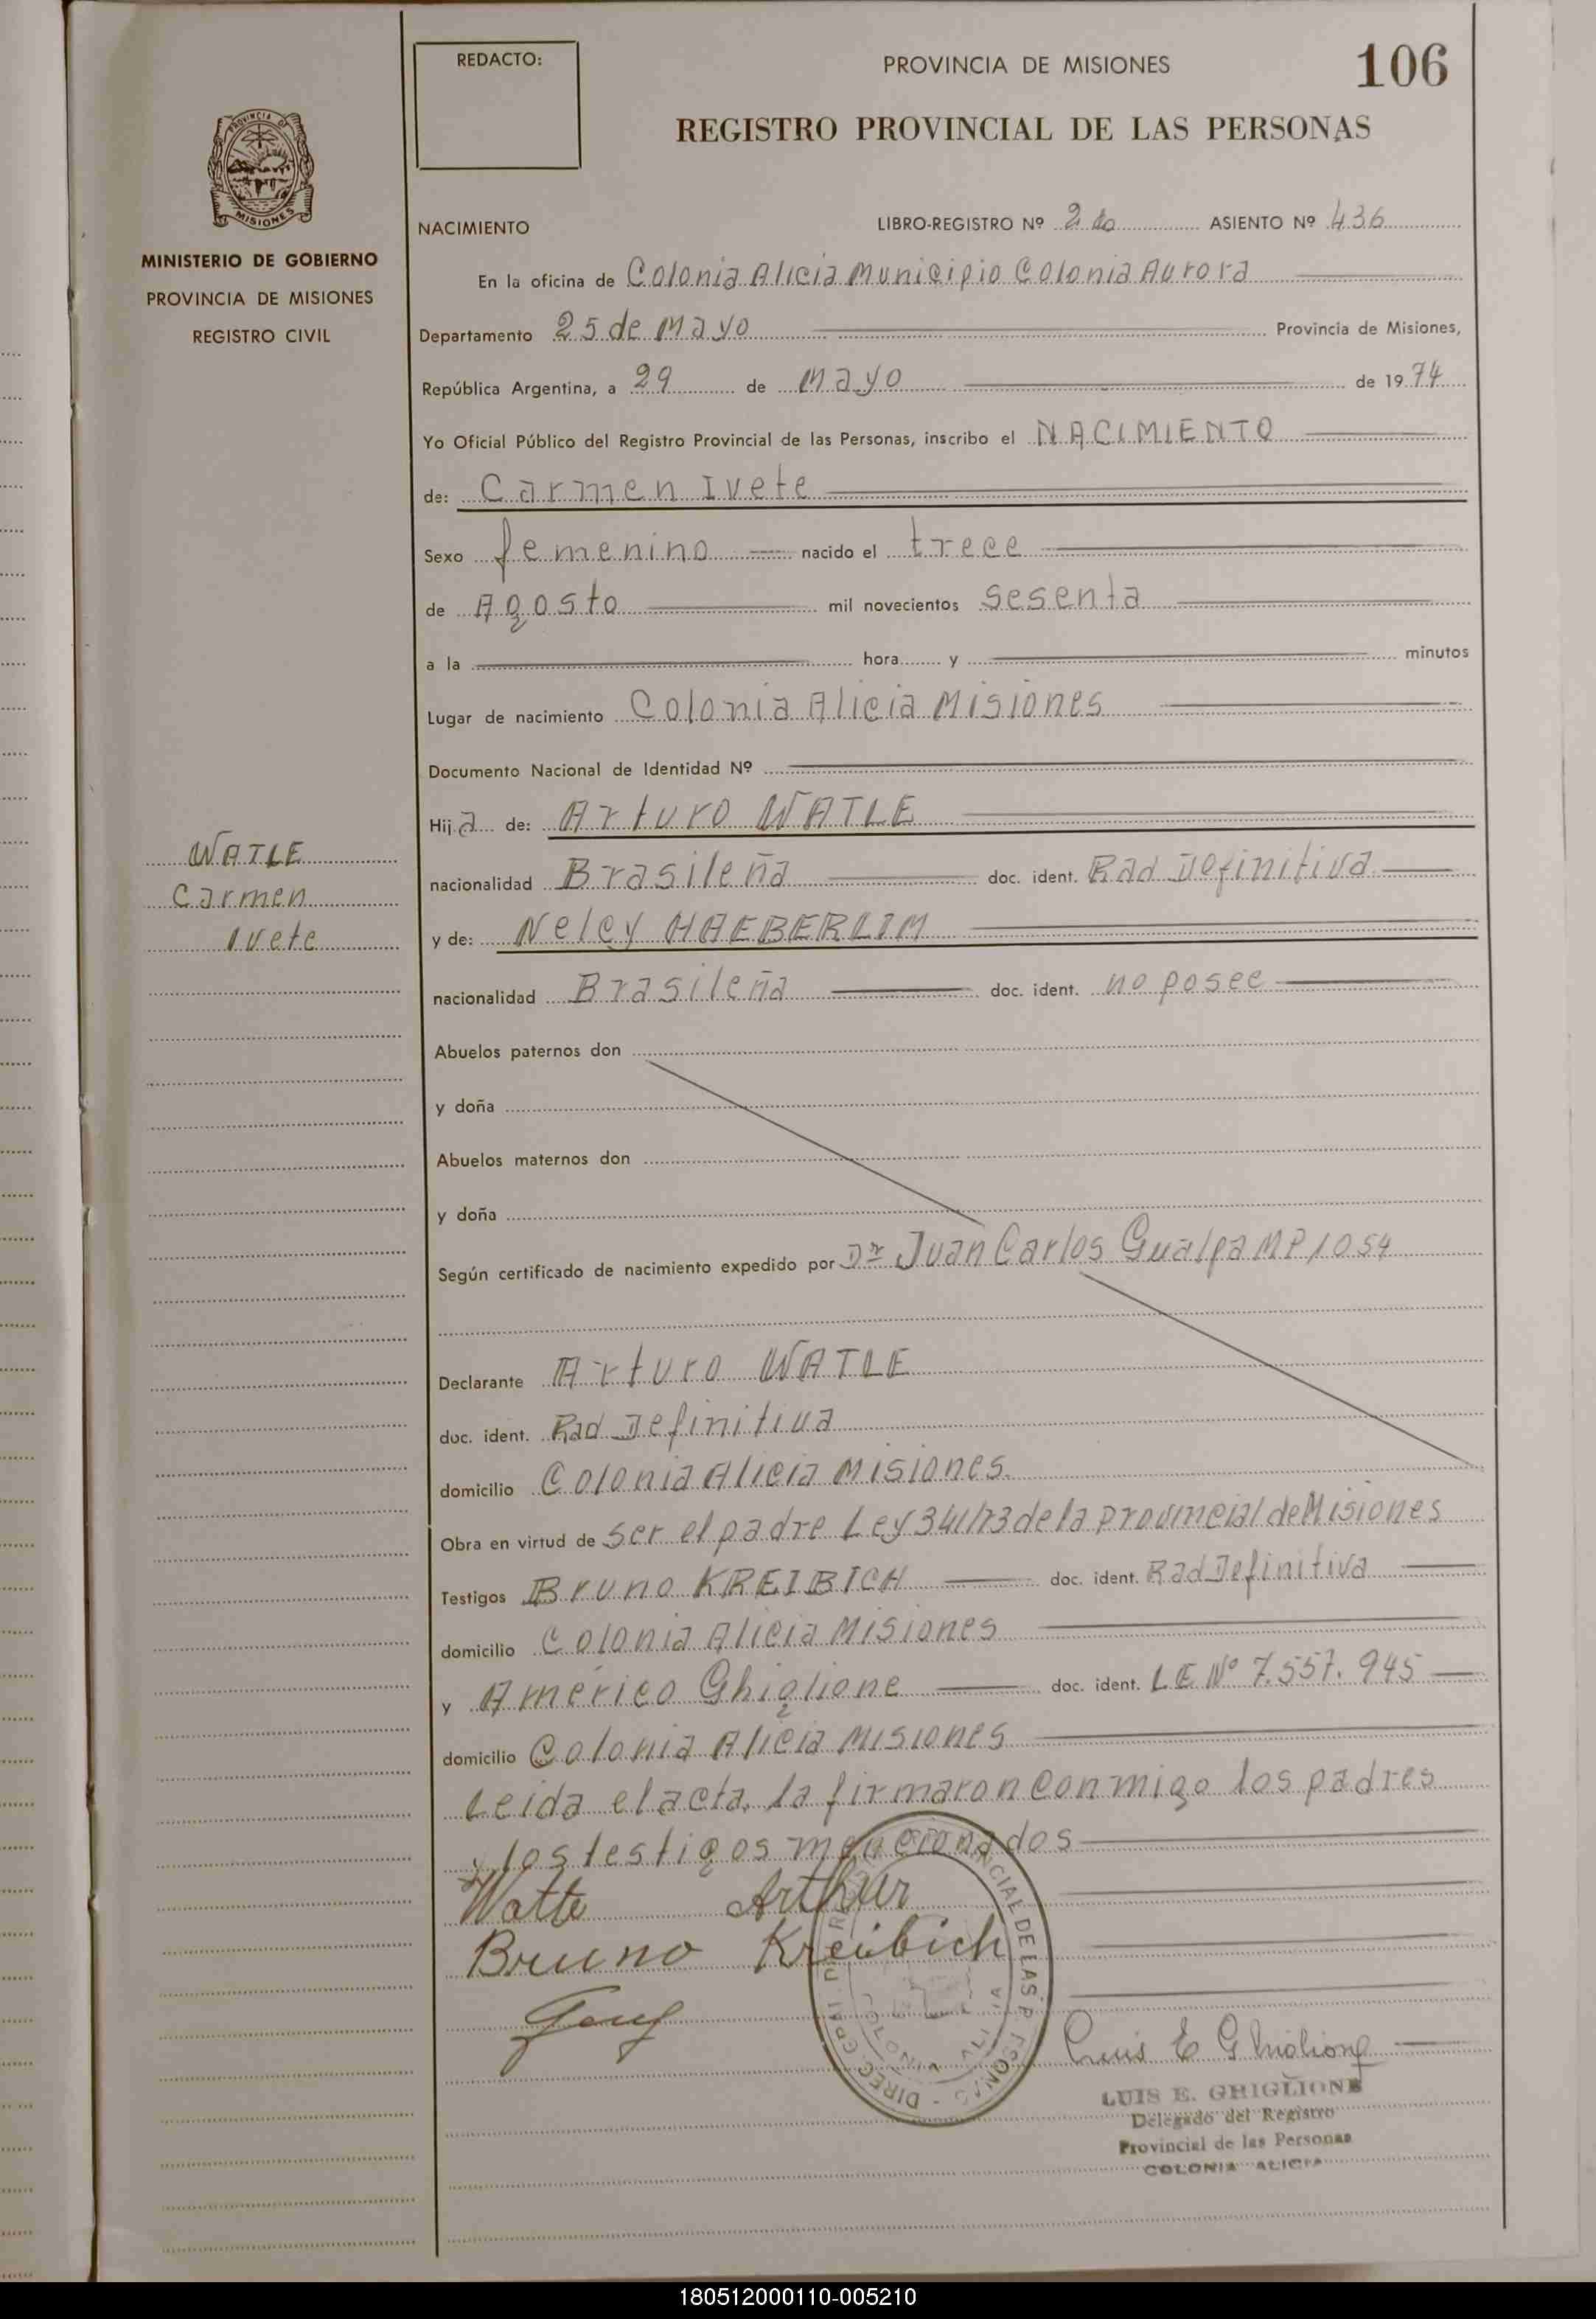 REDACTO:
PROVINCIA DE MISIONES
106
REGISTRO PROVINCIAL DE LAS PERSONAS
PROVINCIA DE
MISIONES
MINISTERIO DE GOBIERNO
PROVINCIA DE MISIONES
REGISTRO CIVIL
NACIMIENTO LIBRO-REGISTRO Nº 2do ASIENTO Nº 436
En la oficina de Colonia Alicia Municipio Colonia Aurora
Departamento 25 de Mayo Provincia de Misiones,
República Argentina, a 29 de Mayo de 1974
Yo Oficial Público del Registro Provincial de las Personas, inscribo el NACIMIENTO
de: Carmen Ivete
Sexo femenino nacido el trece
de Agosto mil novecientos sesenta
a la hora y minutos
Lugar de nacimiento Colonia Alicia Misiones
Documento Nacional de Identidad Nº
Hija de: Arturo WATLE
WATLE
Carmen
Ivete
nacionalidad Brasileña doc. ident. Rad Definitiva
y de: Nelcy HAEBERLIM
nacionalidad Brasileña doc. ident. no posee
Abuelos paternos don
y doña
Abuelos maternos don
y doña
Según certificado de nacimiento expedido por Dr Juan Carlos Gualpa MP 1054
Declarante Arturo WATLE
doc. ident. Rad Definitiva
domicilio Colonia Alicia Misiones
Obra en virtud de ser el padre Ley 341/73 de la Provincial de Misiones
Testigos Bruno KREIBICH doc. ident. Rad Definitiva
domicilio Colonia Alicia Misiones
y Américo Ghiglione doc. ident. LE Nº 7.557.945
domicilio Colonia Alicia Misiones
Leida el acta, la firmaron conmigo los padres
y los testigos mencionados
Watte Arthur
Bruno Kreibich
Luis E Ghiglione
LUIS E. GHIGLIONE
Delegado del Registro
Provincial de las Personas
COLONIA ALICIA
180512000110-005210